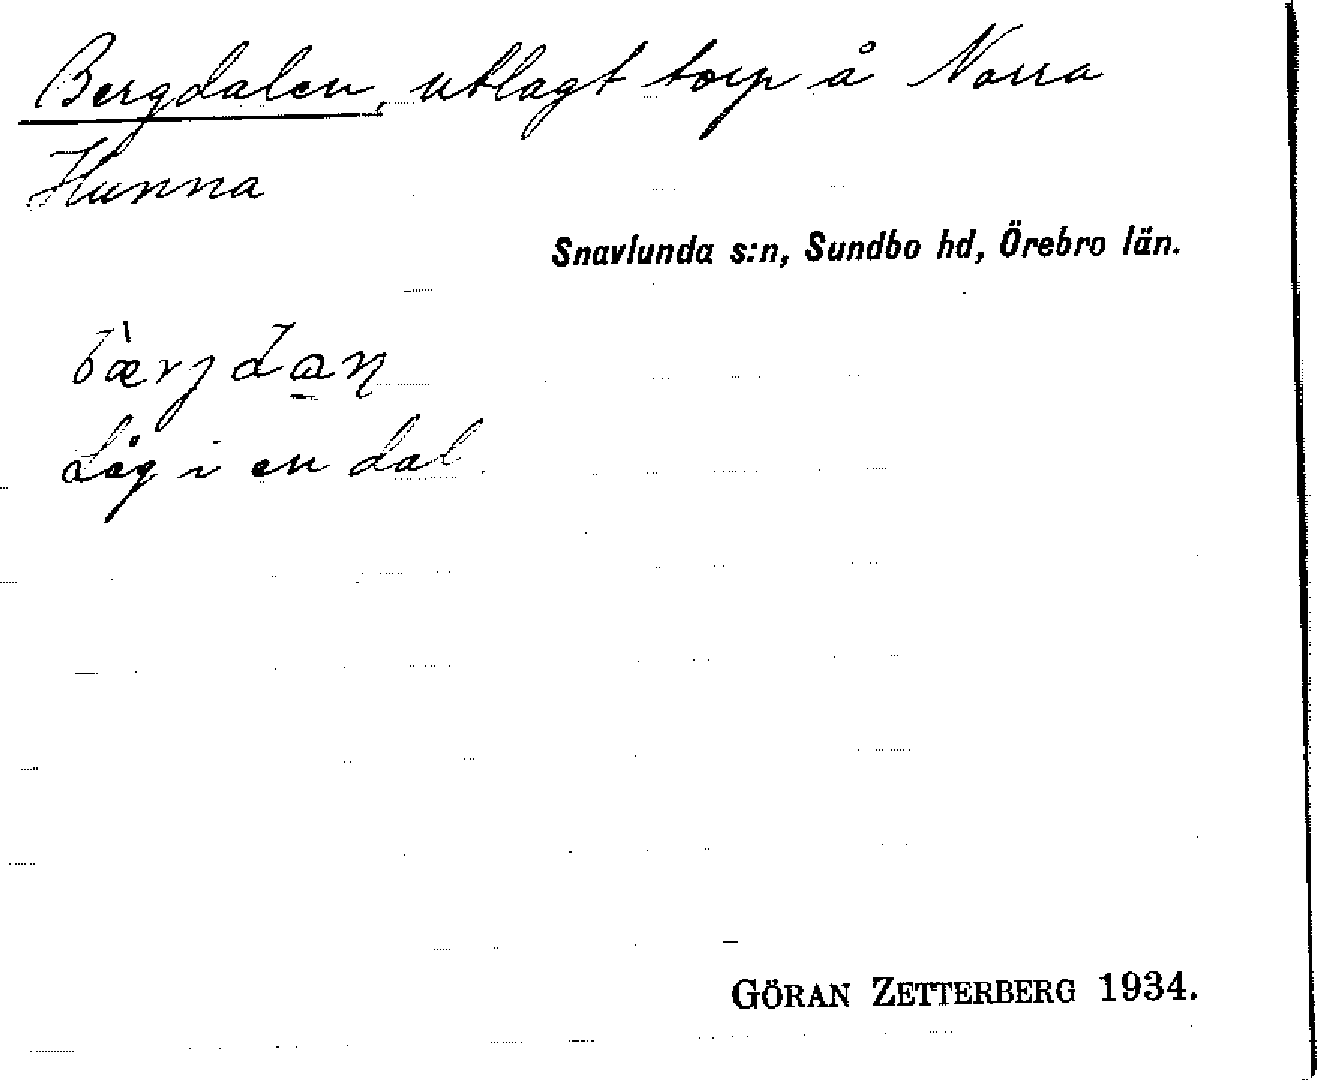 Bergdalen, utlagt torp å Norra
Hunna
Snavlunda s:n, Sundbo hd, Örebro län.
bà̀rjdan
Låg i en dal.
GÖRAN ZETTERBERG 1934.